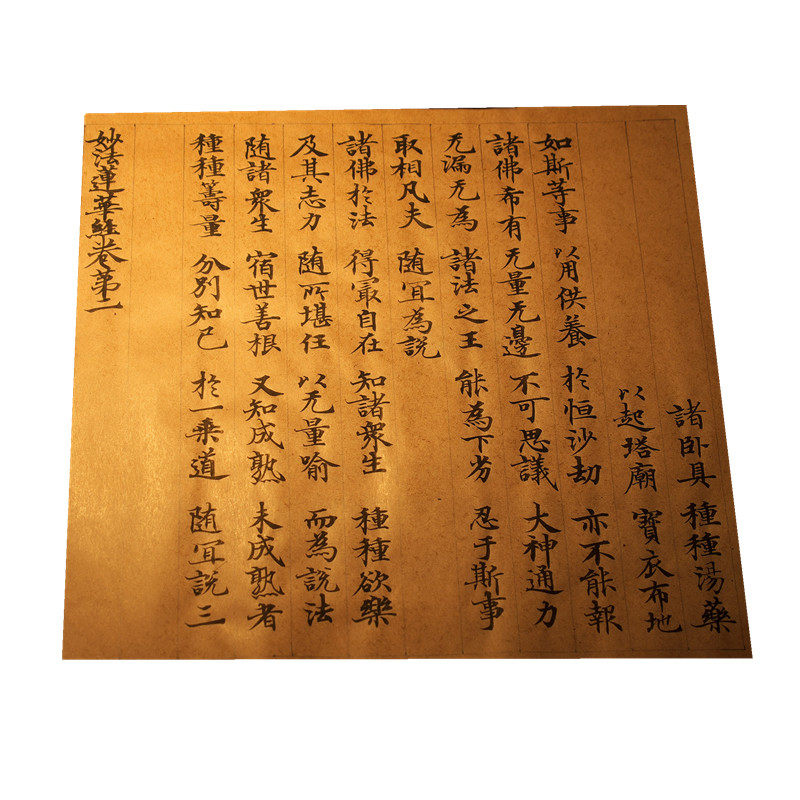 諸卧具 種種湯藥
以起塔廟 寶衣布地
如斯等事 以用供養 於恒沙劫 亦不能報
諸佛希有 无量无邊 不可思議 大神通力
无漏无為 諸法之王 能為下劣 忍于斯事
取相凡夫 随冝為說
諸佛於法 得冣自在 知諸衆生 種種欲樂
及其志力 随所堪任 以无量喻 而為說法
随諸衆生 宿世善根 又知成熟 未成熟者
種種籌量 分別知已 於一乗道 随冝說三
妙法蓮華經卷第二